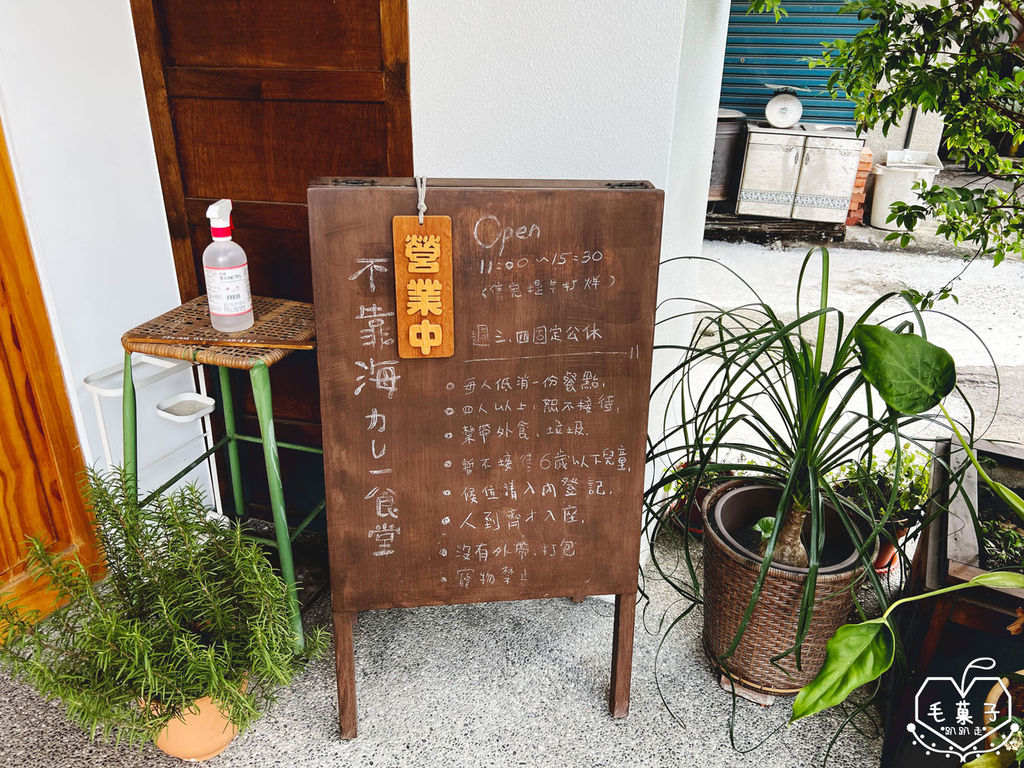 營業中
不靠海カレー食堂
Open
11:00~15:30
(售完提早打烊)
週三、四固定公休
每人低消一份餐點.
四人以上,恕不接待.
禁帶外食、垃圾.
暫不接待6歲以下兒童.
候位請入內登記.
人到齊才入座.
沒有外帶、打包
寵物禁止
毛菓子
趴趴走